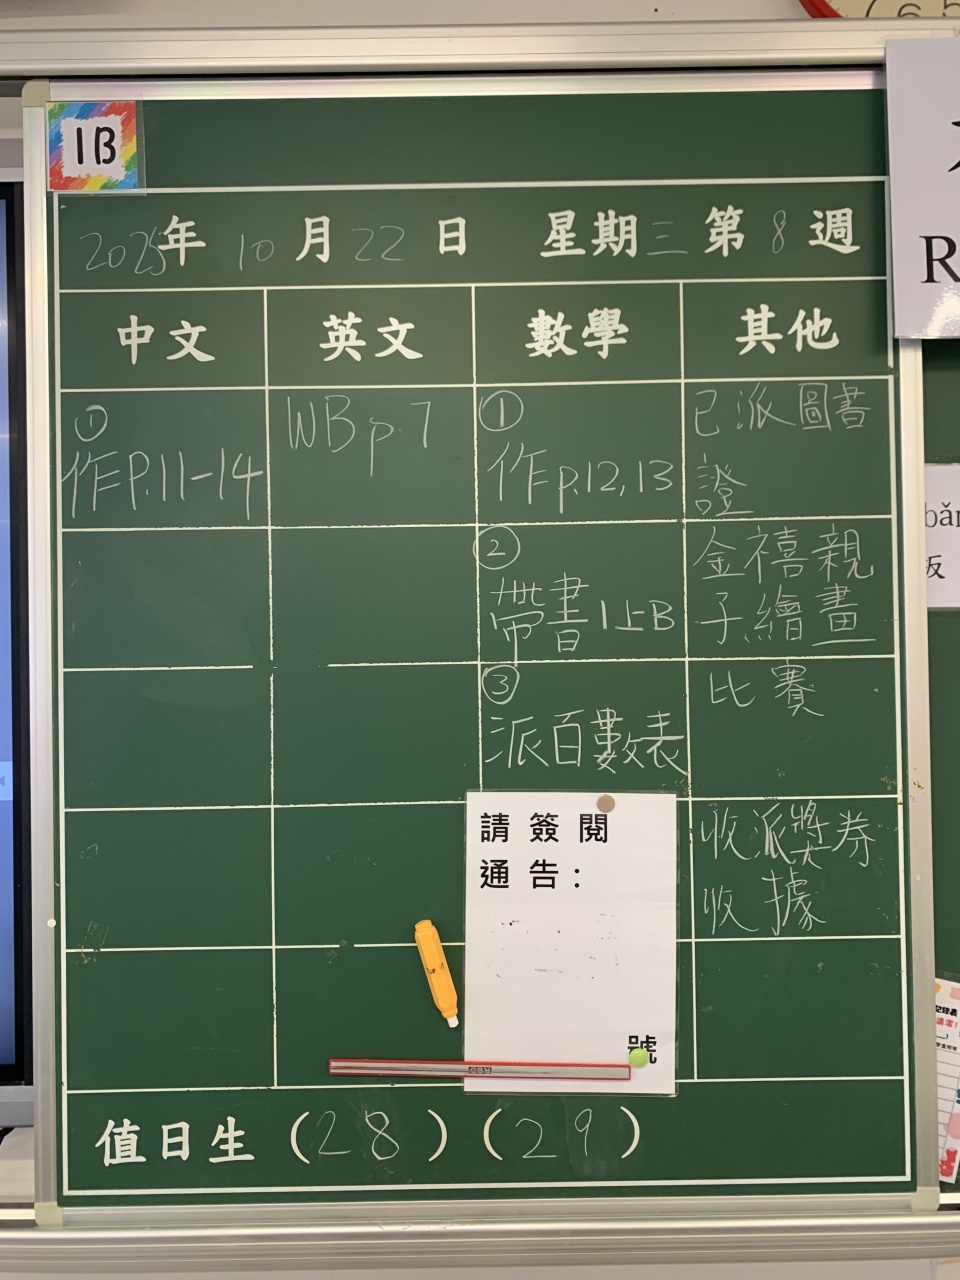 1B
2025年 10月22日 星期三 第8週
中文 英文 數學 其他
①
作P.11-14
WB p.7
①
作p.12,13
②
帶書1上B
③
派百數表
已派圖書
證
金禧親
子繪畫
比賽
收派獎券
收據
請簽閱
通告:
號
值日生 (28) (29)
R
bǎn